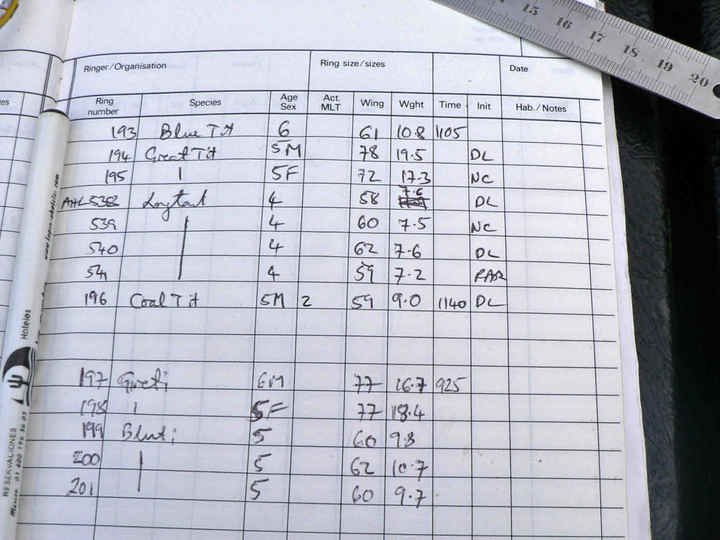 15 16 17 18 19 20
Ringer/Organisation Ring size/sizes Date
Ring number Species Age Sex Act. MLT Wing Wght Time Init Hab./Notes
193 Blue Tit 6 61 10.8 1105
194 Great Tit 5M 78 19.5 DL
195 5F 72 17.3 NC
4 58 7.6 DL
539 4 60 7.5 NC
540 4 62 7.6 DL
541 4 59 7.2 RAR
196 Coal Tit 5M 2 59 9.0 1140 DL
197 6M 77 16.7 925
198 5F 77 18.4
199 5 60 9.8
200 5 62 10.7
201 5 60 9.7
Hoteles
RESERVACIONES